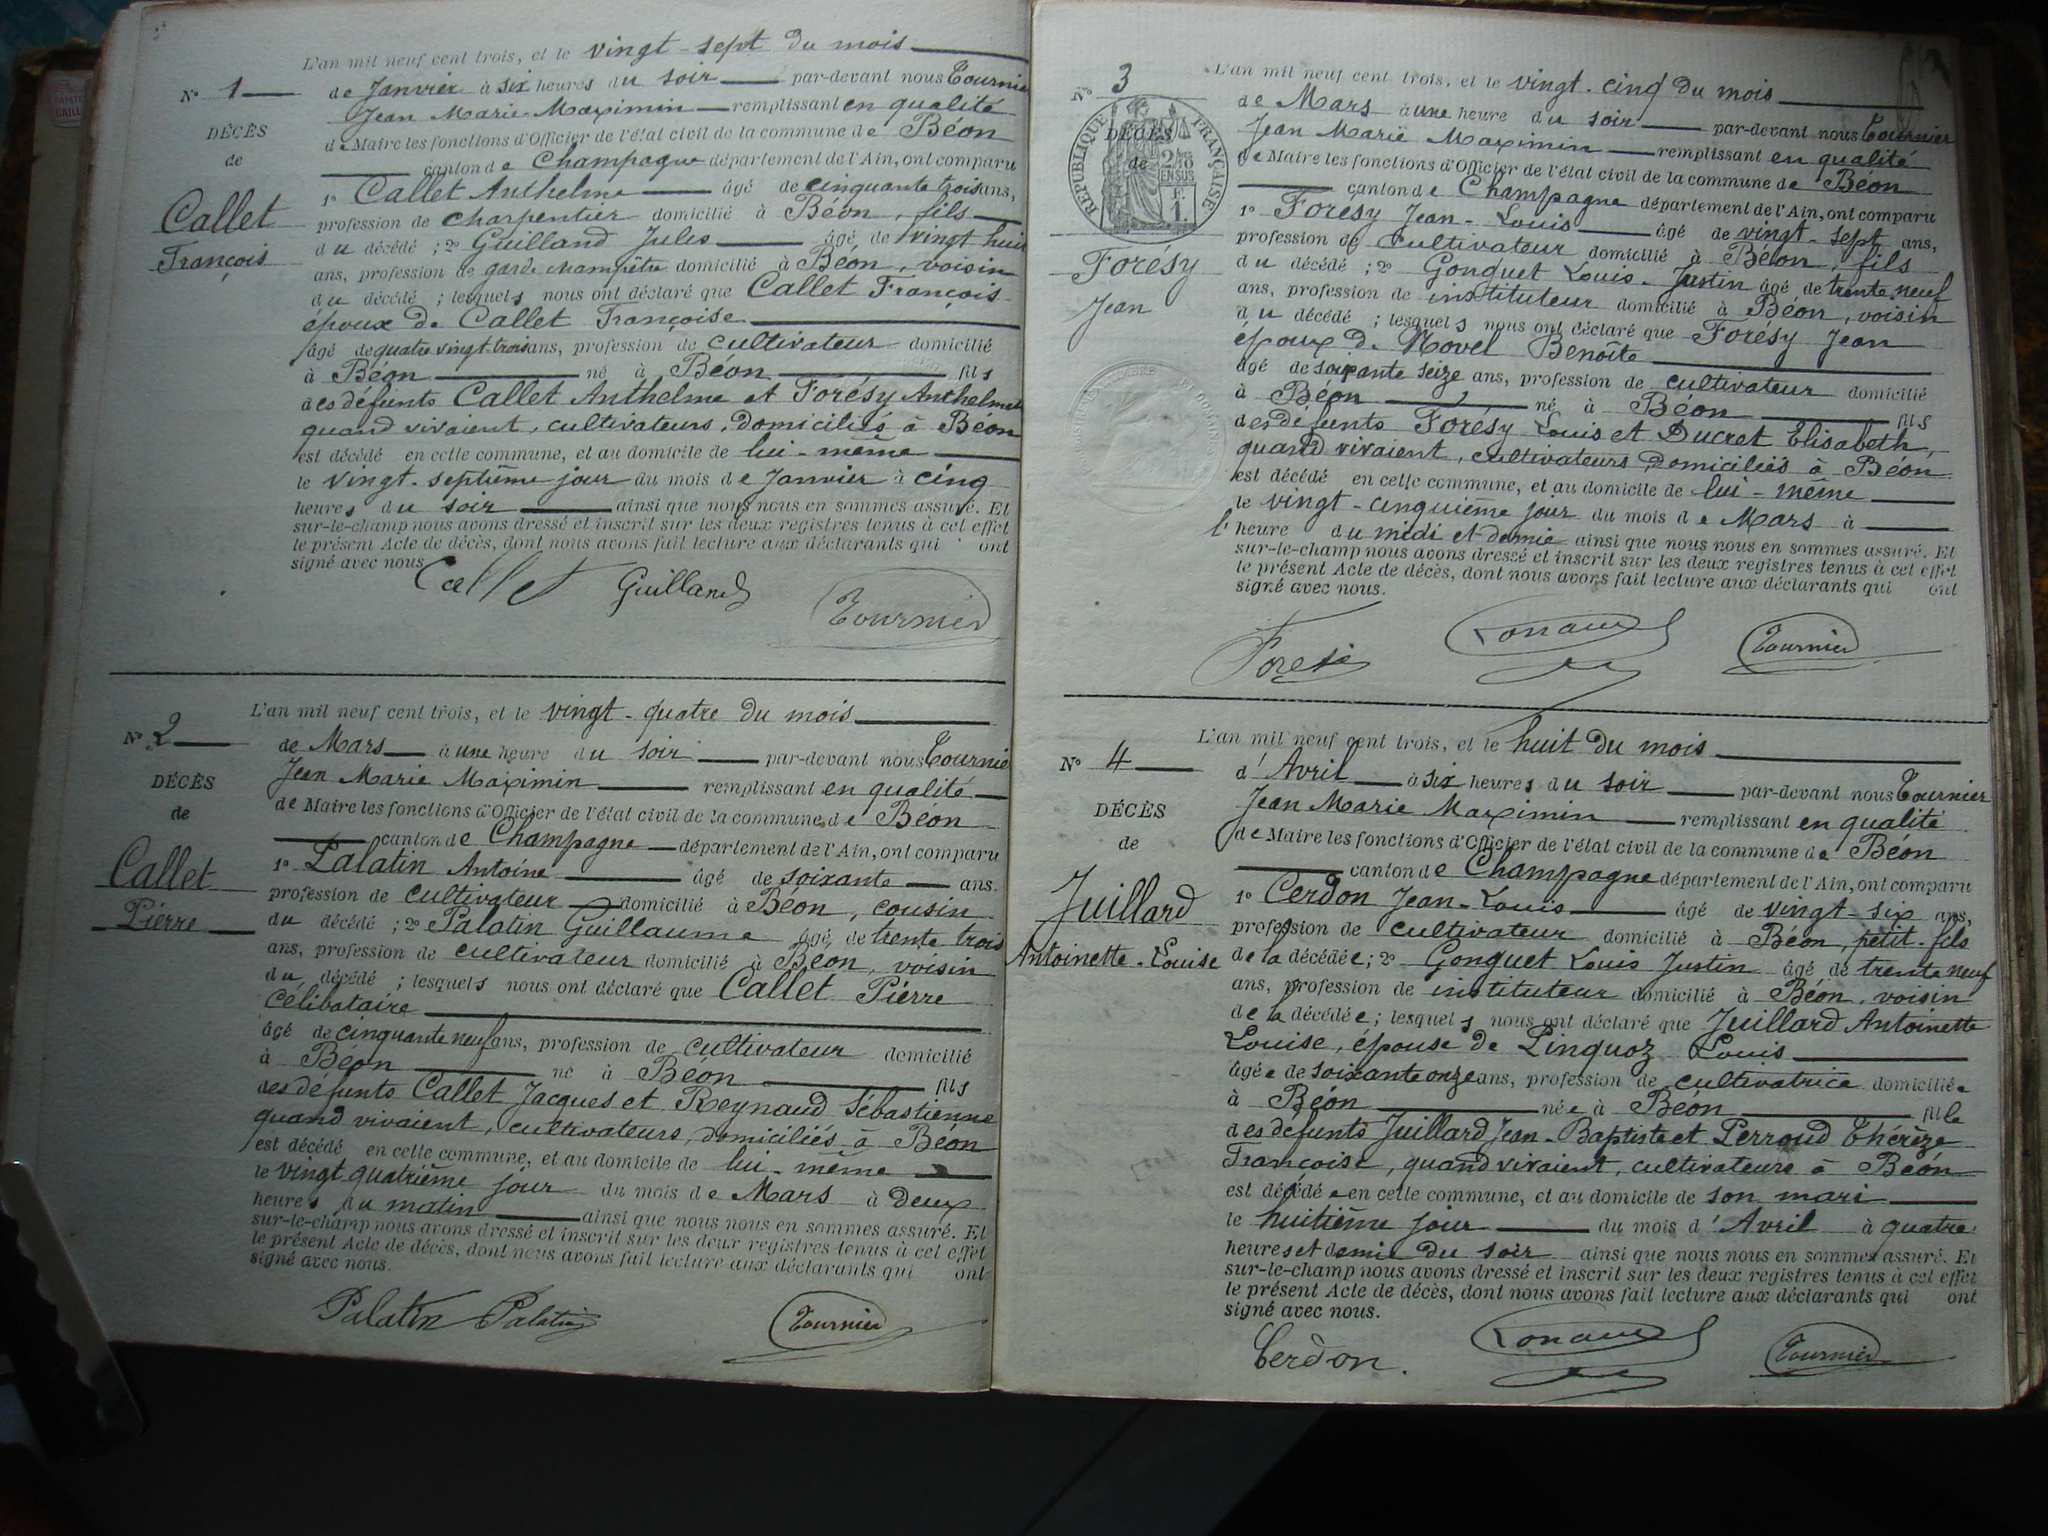 L'an mil neuf cent trois, et le vingt-sept du mois
N° 1 de Janvier à six heures du soir par-devant nous Tournier
Jean Marie Maximin remplissant en qualité
DÉCÈS
de Maire les fonctions d'Officier de l'état civil de la commune de Béon
de
canton de Champagne département de l'Ain, ont comparu
1° Callet Anthelme âgé de cinquante trois ans,
Callet
profession de charpentier domicilié à Béon, fils
du décédé ; 2° Guilland Jules âgé de vingt huit
François
ans, profession de garde champêtre domicilié à Béon, voisin
du décédé ; lesquels nous ont déclaré que Callet François
époux de Callet Françoise
âgé de quatre vingt-trois ans, profession de cultivateur domicilié
à Béon né à Béon fils
des défunts Callet Anthelme et Forésy Anthelmette
quand vivaient, cultivateurs, domiciliés à Béon
est décédé en cette commune, et au domicile de lui-même
le vingt-septième jour du mois de Janvier à cinq
heures du soir ainsi que nous nous en sommes assuré. Et
sur-le-champ nous avons dressé et inscrit sur les deux registres tenus à cet effet
le présent Acte de décès, dont nous avons fait lecture aux déclarants qui ont
signé avec nous
Callet Guilland Tournier
L'an mil neuf cent trois, et le vingt-quatre du mois
N° 2 de Mars à une heure du soir par-devant nous Tournier
Jean Marie Maximin remplissant en qualité
DÉCÈS
de Maire les fonctions d'Officier de l'état civil de la commune de Béon
de
canton de Champagne département de l'Ain, ont comparu
1° Palatin Antoine âgé de soixante ans.
Callet
profession de cultivateur domicilié à Béon, cousin
Pierre
du décédé ; 2° Palatin Guillaume âgé de trente trois
ans, profession de cultivateur domicilié à Béon, voisin
du décédé ; lesquels nous ont déclaré que Callet Pierre
célibataire
âgé de cinquante neuf ans, profession de cultivateur domicilié
à Béon né à Béon fils
des défunts Callet Jacques et Reynaud Sébastienne
quand vivaient, cultivateurs, domiciliés à Béon
est décédé en cette commune, et au domicile de lui-même
le vingt quatrième jour du mois de Mars à deux
heures du matin ainsi que nous nous en sommes assuré. Et
sur-le-champ nous avons dressé et inscrit sur les deux registres tenus à cet effet
le présent Acte de décès, dont nous avons fait lecture aux déclarants qui ont
signé avec nous.
Palatin Palatin Tournier
L'an mil neuf cent trois, et le vingt-cinq du mois
N° 3
de Mars à une heure du soir par-devant nous Tournier
Jean Marie Maximin remplissant en qualité
RÉPUBLIQUE FRANÇAISE
DÉCÈS
de
EN SUS
F.
1.
de Maire les fonctions d'Officier de l'état civil de la commune de Béon
canton de Champagne département de l'Ain, ont comparu
1° Forésy Jean-Louis âgé de vingt-sept ans,
profession de cultivateur domicilié à Béon, fils
Forésy
du décédé ; 2° Gonguet Louis-Justin âgé de trente neuf
Jean
ans, profession de instituteur domicilié à Béon, voisin
du décédé ; lesquels nous ont déclaré que Forésy Jean
époux de Novel Benoîte
âgé de soixante seize ans, profession de cultivateur domicilié
à Béon né à Béon fils
des défunts Forésy Louis et Ducret Elisabeth,
quand vivaient, cultivateurs domiciliés à Béon
est décédé en cette commune, et au domicile de lui-même
le vingt-cinquième jour du mois de Mars à
l'heure du midi et demie ainsi que nous nous en sommes assuré. Et
sur-le-champ nous avons dressé et inscrit sur les deux registres tenus à cet effet
le présent Acte de décès, dont nous avons fait lecture aux déclarants qui ont
signé avec nous.
Tournier
L'an mil neuf cent trois, et le huit du mois
N° 4
d'Avril à six heures du soir par-devant nous Tournier
Jean Marie Maximin remplissant en qualité
DÉCÈS
de Maire les fonctions d'Officier de l'état civil de la commune de Béon
de
canton de Champagne département de l'Ain, ont comparu
Juillard
1° Cerdon Jean-Louis âgé de vingt-six ans,
profession de cultivateur domicilié à Béon, petit-fils
Antoinette-Louise
de la décédée ; 2° Gonguet Louis Justin âgé de trente neuf
ans, profession de instituteur domicilié à Béon, voisin
de la décédée ; lesquels nous ont déclaré que Juillard Antoinette
Louise, épouse de Linquoz Louis
âgée de soixante onze ans, profession de cultivatrice domiciliée
à Béon née à Béon fille
des défunts Juillard Jean-Baptiste et Perroud Thérèze
Françoise, quand vivaient, cultivateurs à Béon
est décédée en cette commune, et au domicile de son mari
le huitième jour du mois d'Avril à quatre
heures et demie du soir ainsi que nous nous en sommes assuré. Et
sur-le-champ nous avons dressé et inscrit sur les deux registres tenus à cet effet
le présent Acte de décès, dont nous avons fait lecture aux déclarants qui ont
signé avec nous.
Cerdon. Tournier